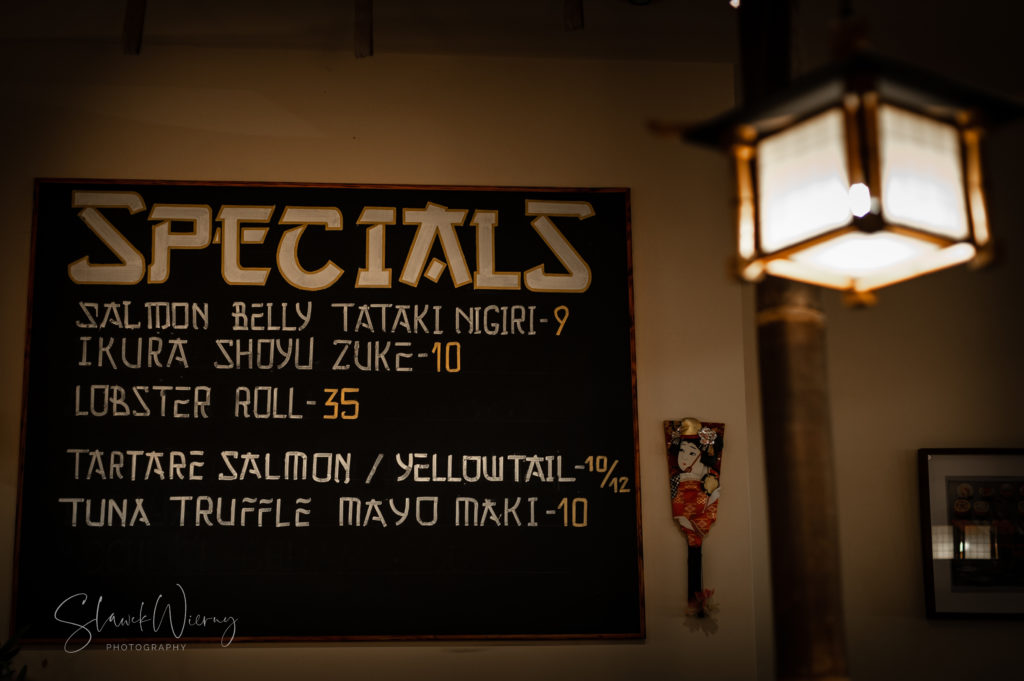 SPECIALS
SALMON BELLY TATAKI NIGIRI-9
IKURA SHOYU ZUKE-10
LOBSTER ROLL-35
TARTARE SALMON / YELLOWTAIL-10/12
TUNA TRUFFLE MAYO MAKI-10
Slawek Wierny
PHOTOGRAPHY